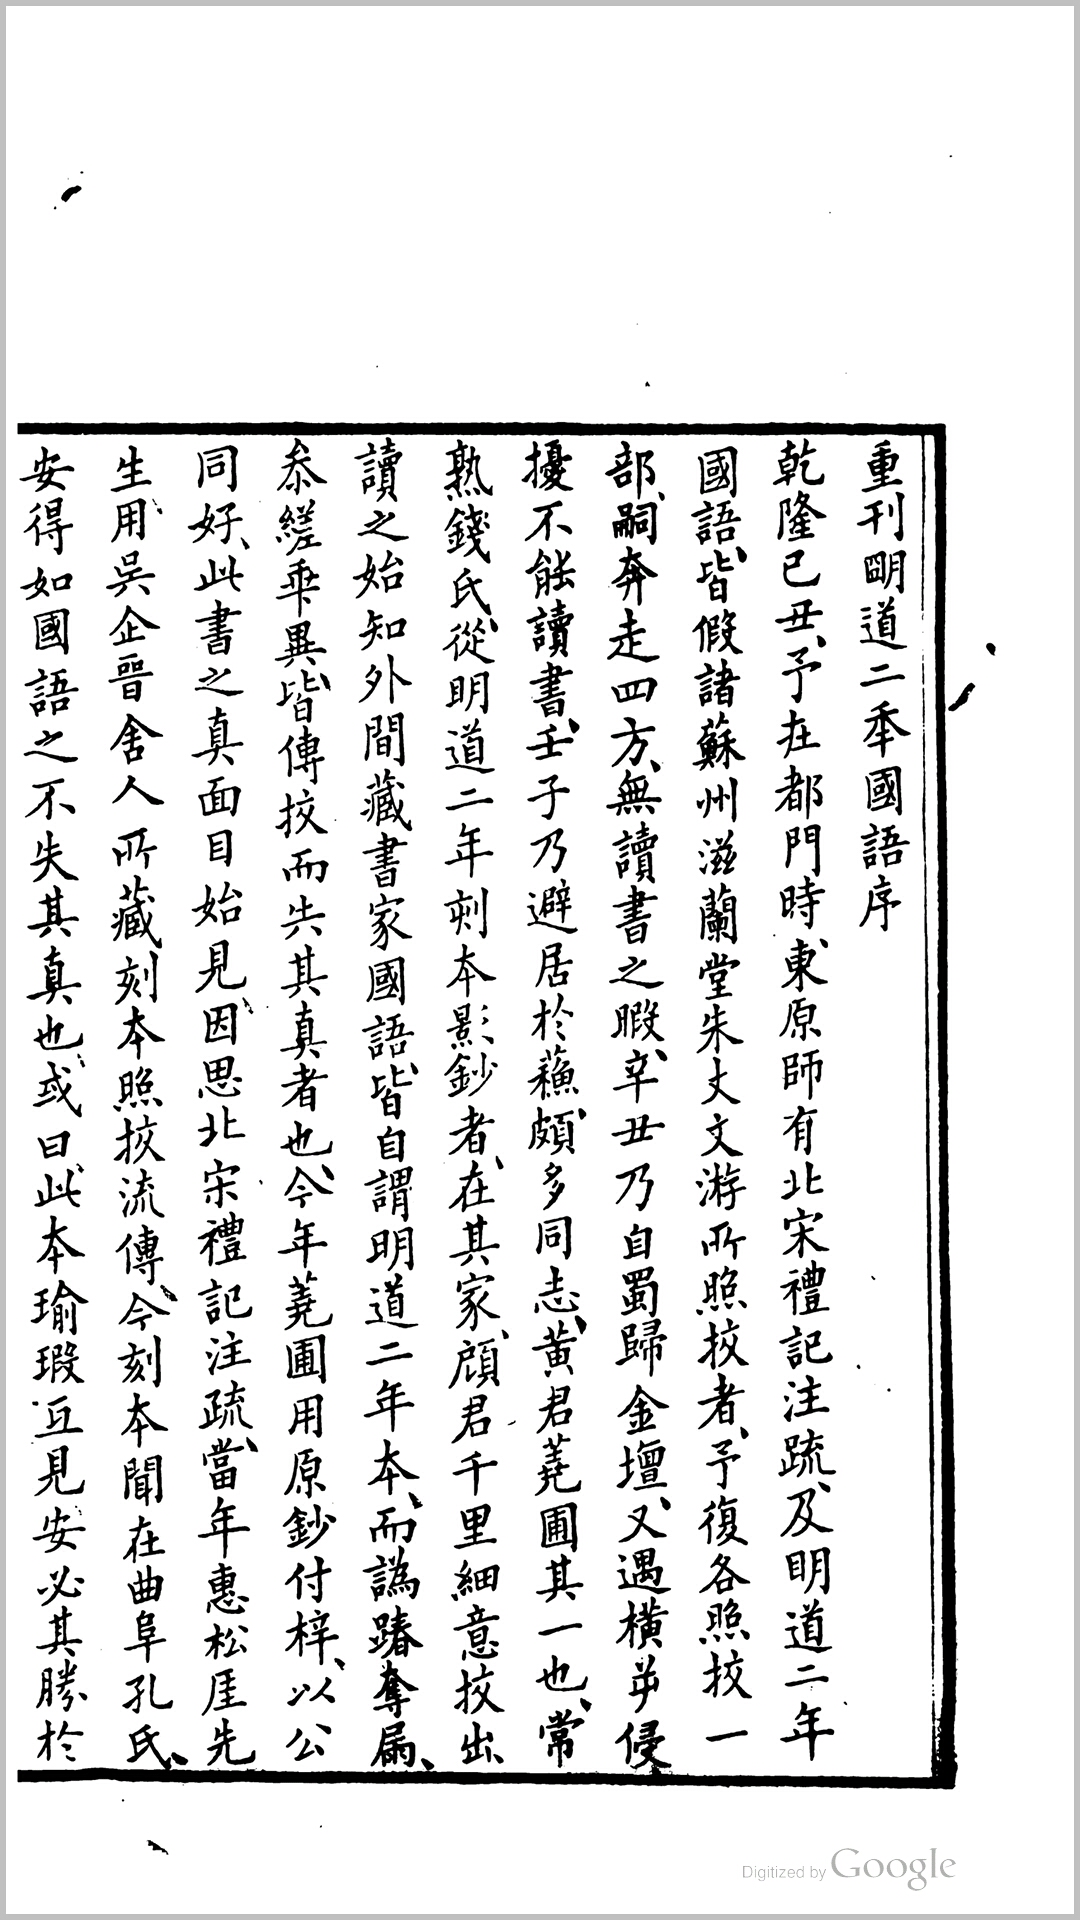 重刊明道二年國語序
乾隆己丑、予在都門時、東原師有北宋禮記注疏、及明道二年
國語、皆假諸蘇州滋蘭堂朱丈文游所照挍者、予復各照挍一
部、嗣奔走四方、無讀書之暇、辛丑乃自蜀歸金壇、又遇橫逆侵
擾不能讀書、壬子乃避居於蘓、頗多同志、黃君蕘圃其一也、常
熟錢氏、從明道二年刻本影鈔者、在其家、顧君千里細意挍出、
讀之始知外間藏書家國語、皆自謂明道二年本、而譌踳奪屚、
叅縒乖異、皆傳挍而失其真者也、今年蕘圃用原鈔付梓、以公
同好、此書之真面目始見、因思北宋禮記注疏、當年惠松厓先
生用吳企晉舍人所藏刻本照挍流傳、今刻本聞在曲阜孔氏、
安得如國語之不失其真也、或曰、此本瑜瑕互見安必其勝於
Digitized by Google